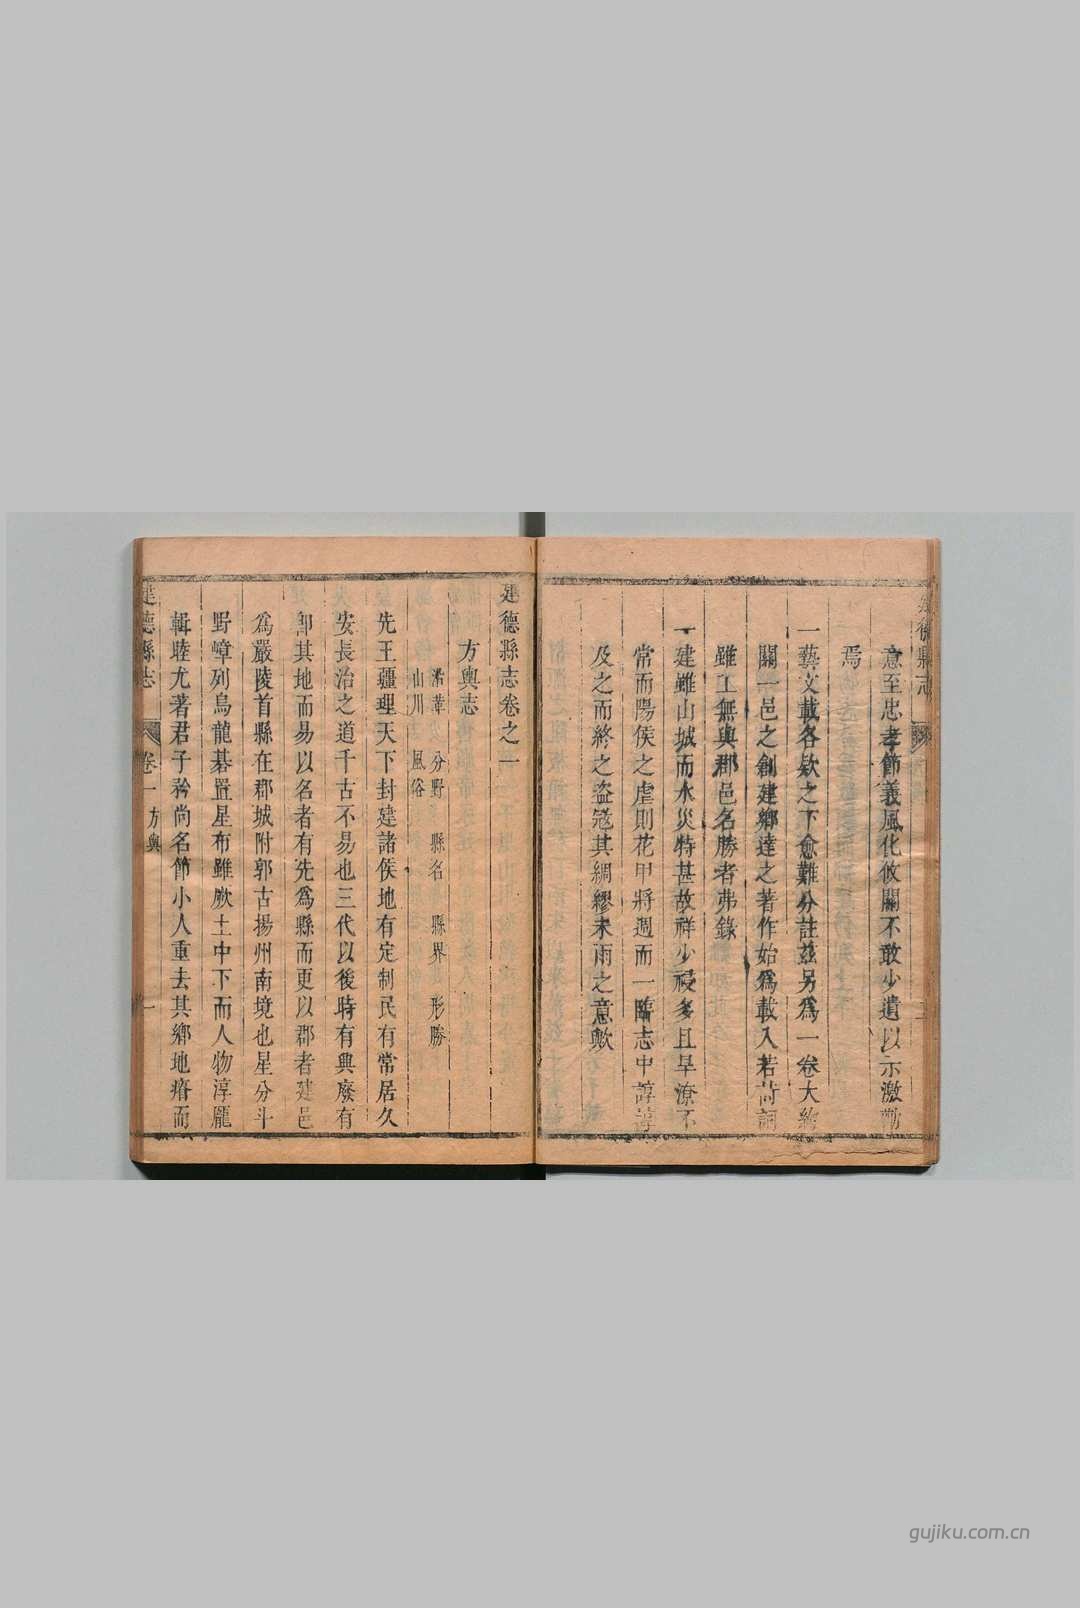 意至忠孝節義風化攸關不敢少遺以示激勸
焉
一藝文載各欵之下愈難分註茲另為一卷大約
關一邑之創建鄉達之著作始為載入若荷詞
雖工無與郡邑名勝者弗錄
一建雖山城而水災特甚故祥少祲多且旱潦不
常而陽侯之虐則花甲將週而一臨志中諄諄
及之而終之盜冦其綢繆未雨之意歟
建德縣志卷之一
方輿志
沿革 分野 縣名 縣界 形勝
山川 風俗
先王疆理天下封建諸侯地有定制民有常居久
安長治之道千古不易也三代以後時有興廢有
卽其地而易以名者有先為縣而更以郡者建邑
為嚴陵首縣在郡城附郭古揚州南境也星分斗
野嶂列烏龍碁置星布雖厥土中下而人物淳龐
輯睦尤著君子矜尚名節小人重去其鄉地瘠而
建德縣志 卷一 方輿 一
gujiku.com.cn